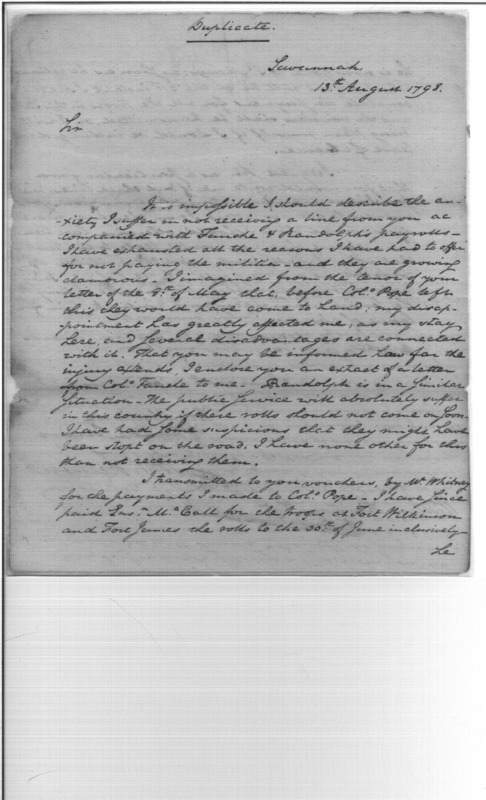 Duplicate.
Savannah
13th August 1798.
Sir
It is impossible I should describe the an-
xiety I suffer in not receiving a line from you ac
companied with Fauche & Randolph's payrolls—
I have exhausted all the reasons I have had to offer
for not paying the militia—and they are growing
clamorous. I imagined from the tenor of your
letter of the 8th of May that, before Colo Pope left
this they would have come to hand, my disap-
pointment has greatly affected me, as my stay
here, and several disadvantages are connected
with it. That you may be informed how far the
injury extends, I enclose you an extract of a letter
from Colo Fauche to me. Randolph is in a similar
situation—The public service will absolutely suffer
in this country if these rolls should not come on soon.
I have had some suspicions that they might have
been stopt on the road. I have none other for this
than not receiving them.
I transmitted to you vouchers, by Mr Whitney
for the payments I made to Colo Pope—I have since
paid Ens. McCall for the troops at Fort Wilkinson
and Fort James the rolls to the 30th of June inclusively—
he